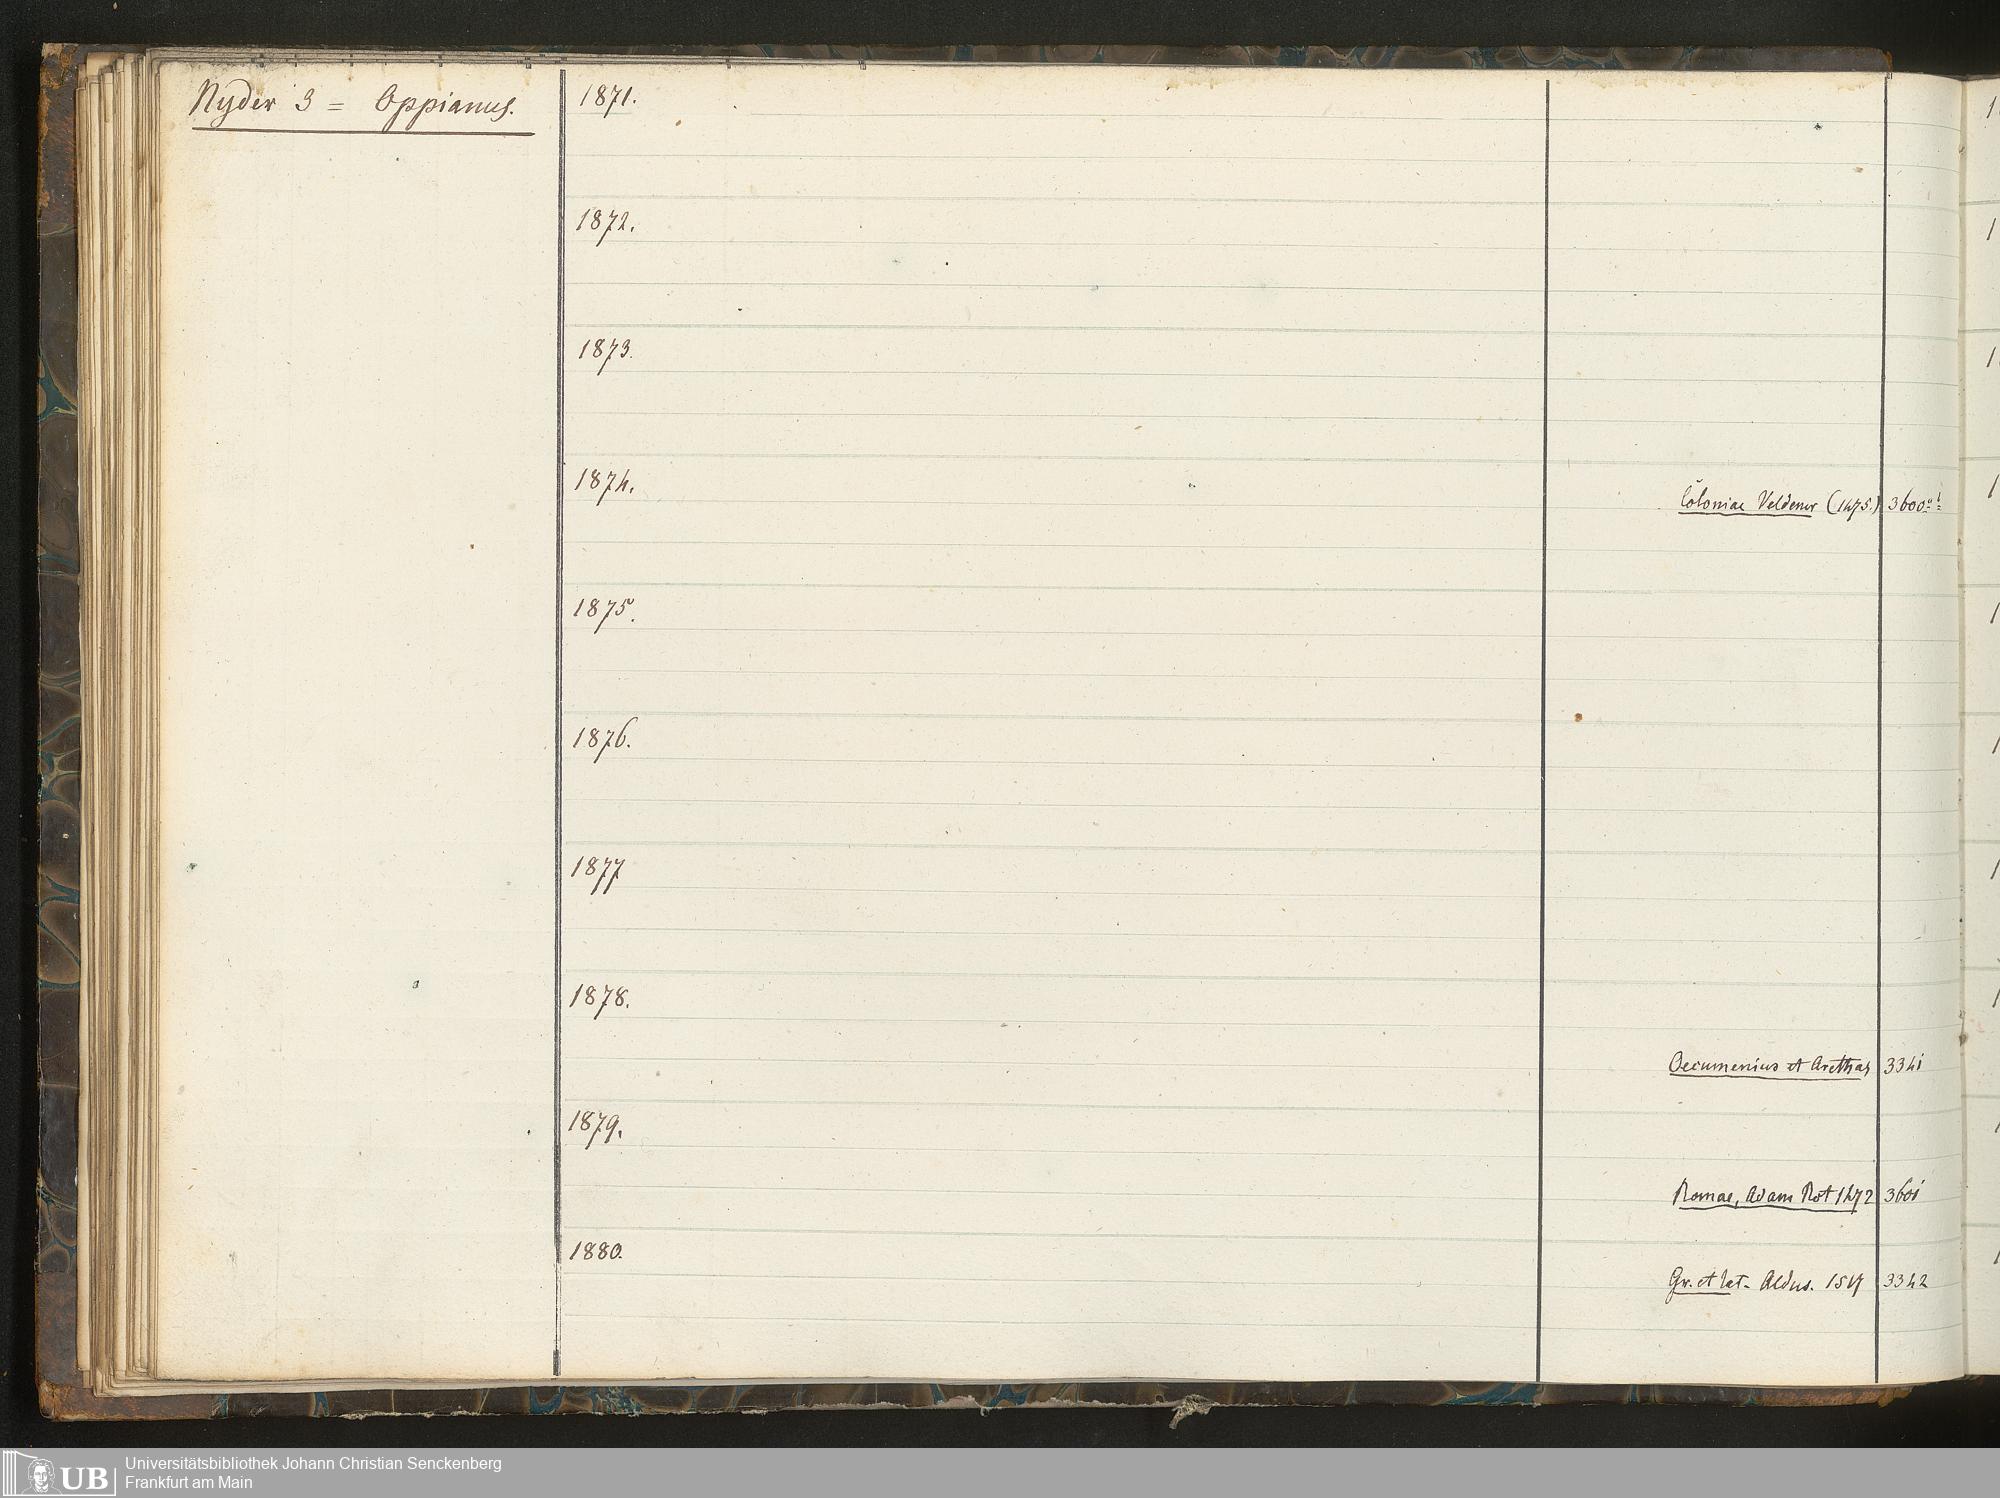 Nyder 3 = Oppianus.
1871.
1872.
1873.
1874.
Coloniae Veldener (1475.) 3600
1875.
1876.
1877
1878.
Oecumenius et Arethas 3341
1879.
Romae, Adam Rot 1472 3601
1880.
Gr. et lat. Aldus. 1517 3342
UB
Universitätsbibliothek Johann Christian Senckenberg
Frankfurt am Main